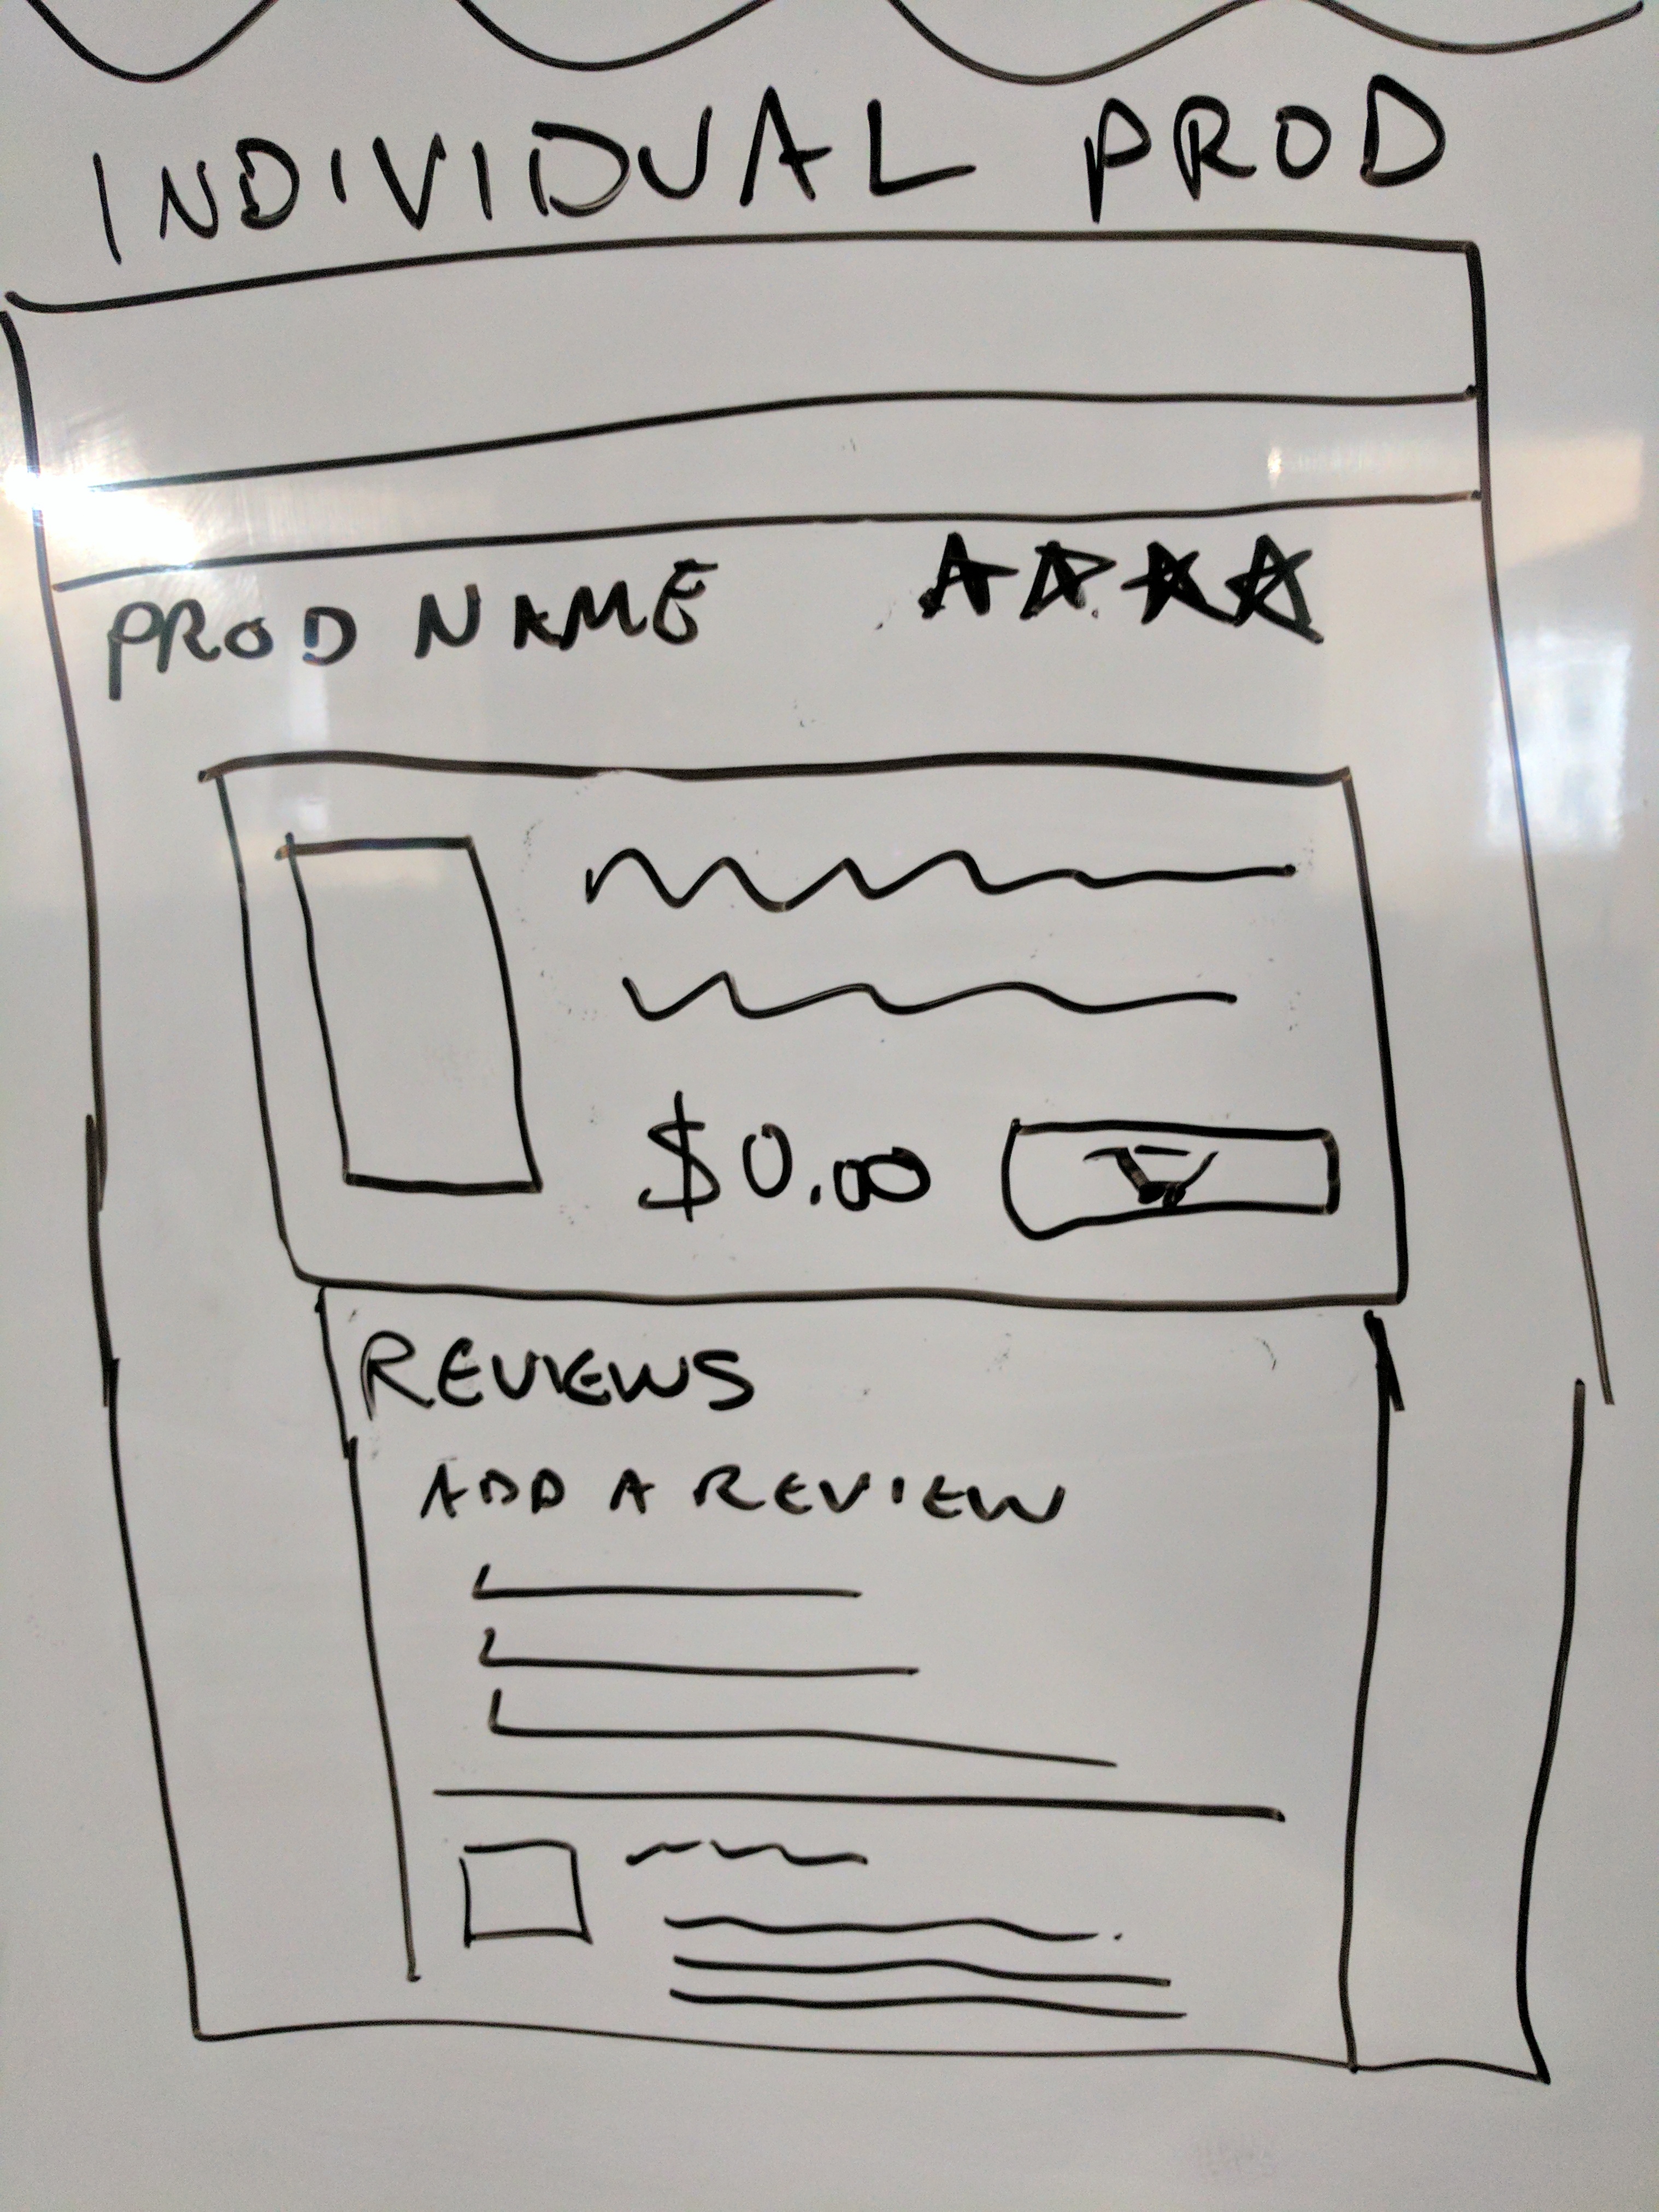 INDIVIDUAL PROD
PROD NAME
$0.00
REVIEWS
ADD A REVIEW